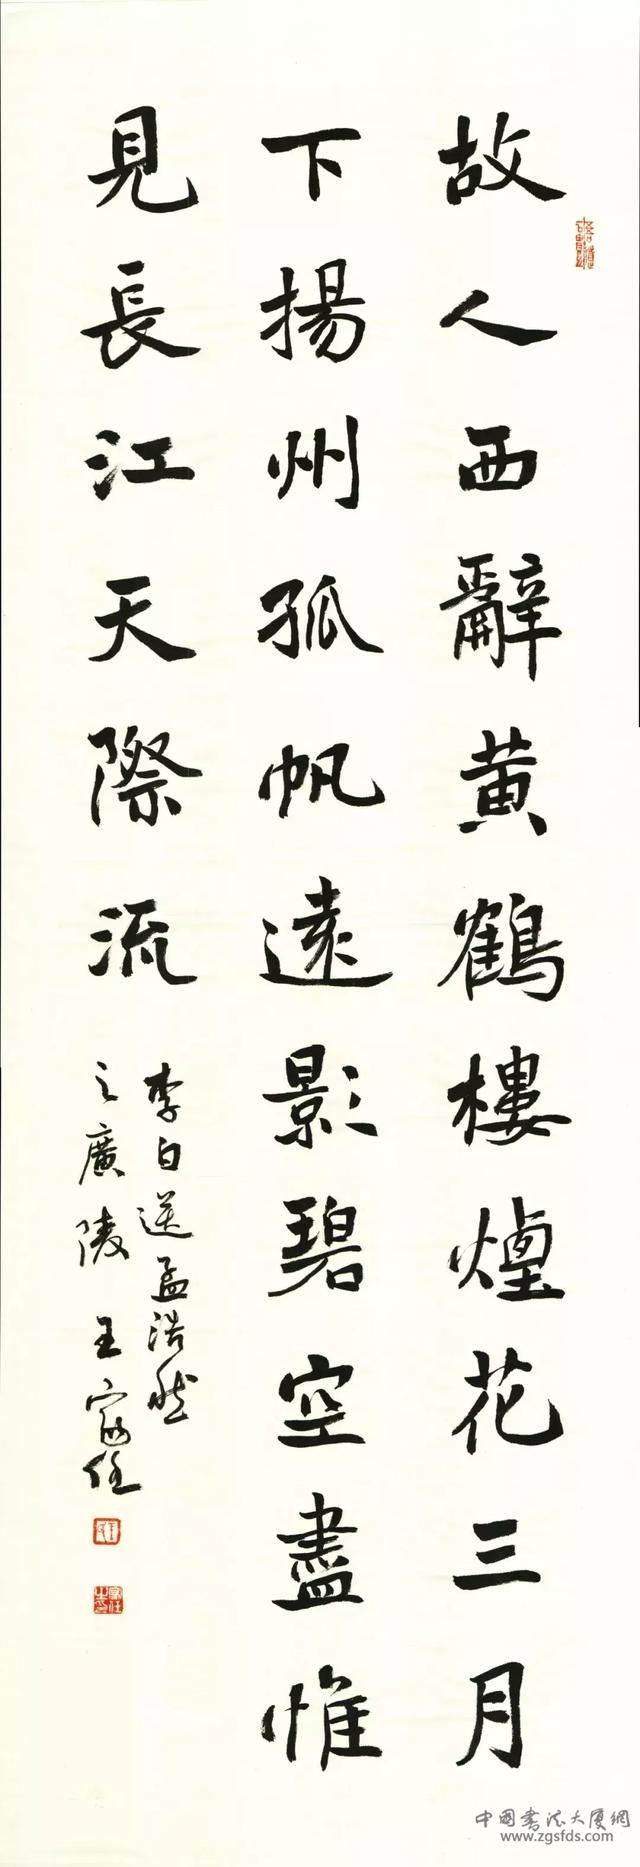 故人西辭黄鶴樓煙花三月
下揚州孤帆遠影碧空盡惟
見長江天際流
李白送孟浩然
之廣陵 王家任
中国书法大厦網
www.zgsfds.com